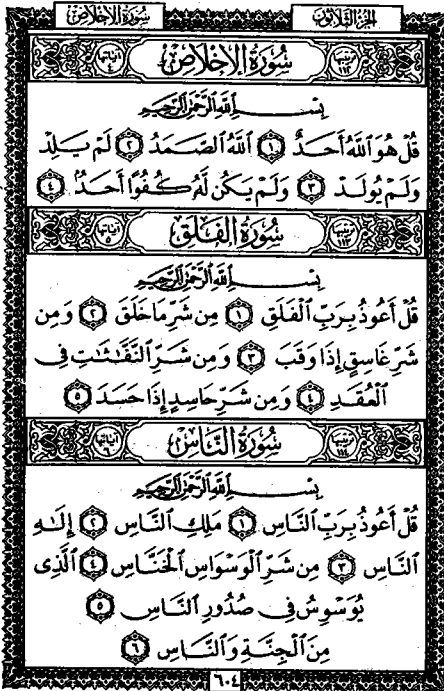 سُورَةُ الإِخْلَاصِ الجُزْءُ الثَّلَاثُونَ
ترتيبها ١١٢ سُورَةُ الإِخْلَاصِ آياتها ٤
بِسْمِ اللَّهِ الرَّحْمَٰنِ الرَّحِيمِ
قُلْ هُوَ اللَّهُ أَحَدٌ ١ اللَّهُ الصَّمَدُ ٢ لَمْ يَلِدْ
وَلَمْ يُولَدْ ٣ وَلَمْ يَكُن لَّهُ كُفُوًا أَحَدٌ ٤
ترتيبها ١١٣ سُورَةُ الفَلَقِ آياتها ٥
بِسْمِ اللَّهِ الرَّحْمَٰنِ الرَّحِيمِ
قُلْ أَعُوذُ بِرَبِّ الْفَلَقِ ١ مِن شَرِّ مَا خَلَقَ ٢ وَمِن
شَرِّ غَاسِقٍ إِذَا وَقَبَ ٣ وَمِن شَرِّ النَّفَّٰثَٰتِ فِي
الْعُقَدِ ٤ وَمِن شَرِّ حَاسِدٍ إِذَا حَسَدَ ٥
ترتيبها ١١٤ سُورَةُ النَّاسِ آياتها ٦
بِسْمِ اللَّهِ الرَّحْمَٰنِ الرَّحِيمِ
قُلْ أَعُوذُ بِرَبِّ النَّاسِ ١ مَلِكِ النَّاسِ ٢ إِلَٰهِ
النَّاسِ ٣ مِن شَرِّ الْوَسْوَاسِ الْخَنَّاسِ ٤ الَّذِي
يُوَسْوِسُ فِي صُدُورِ النَّاسِ ٥
مِنَ الْجِنَّةِ وَالنَّاسِ ٦
٦٠٤